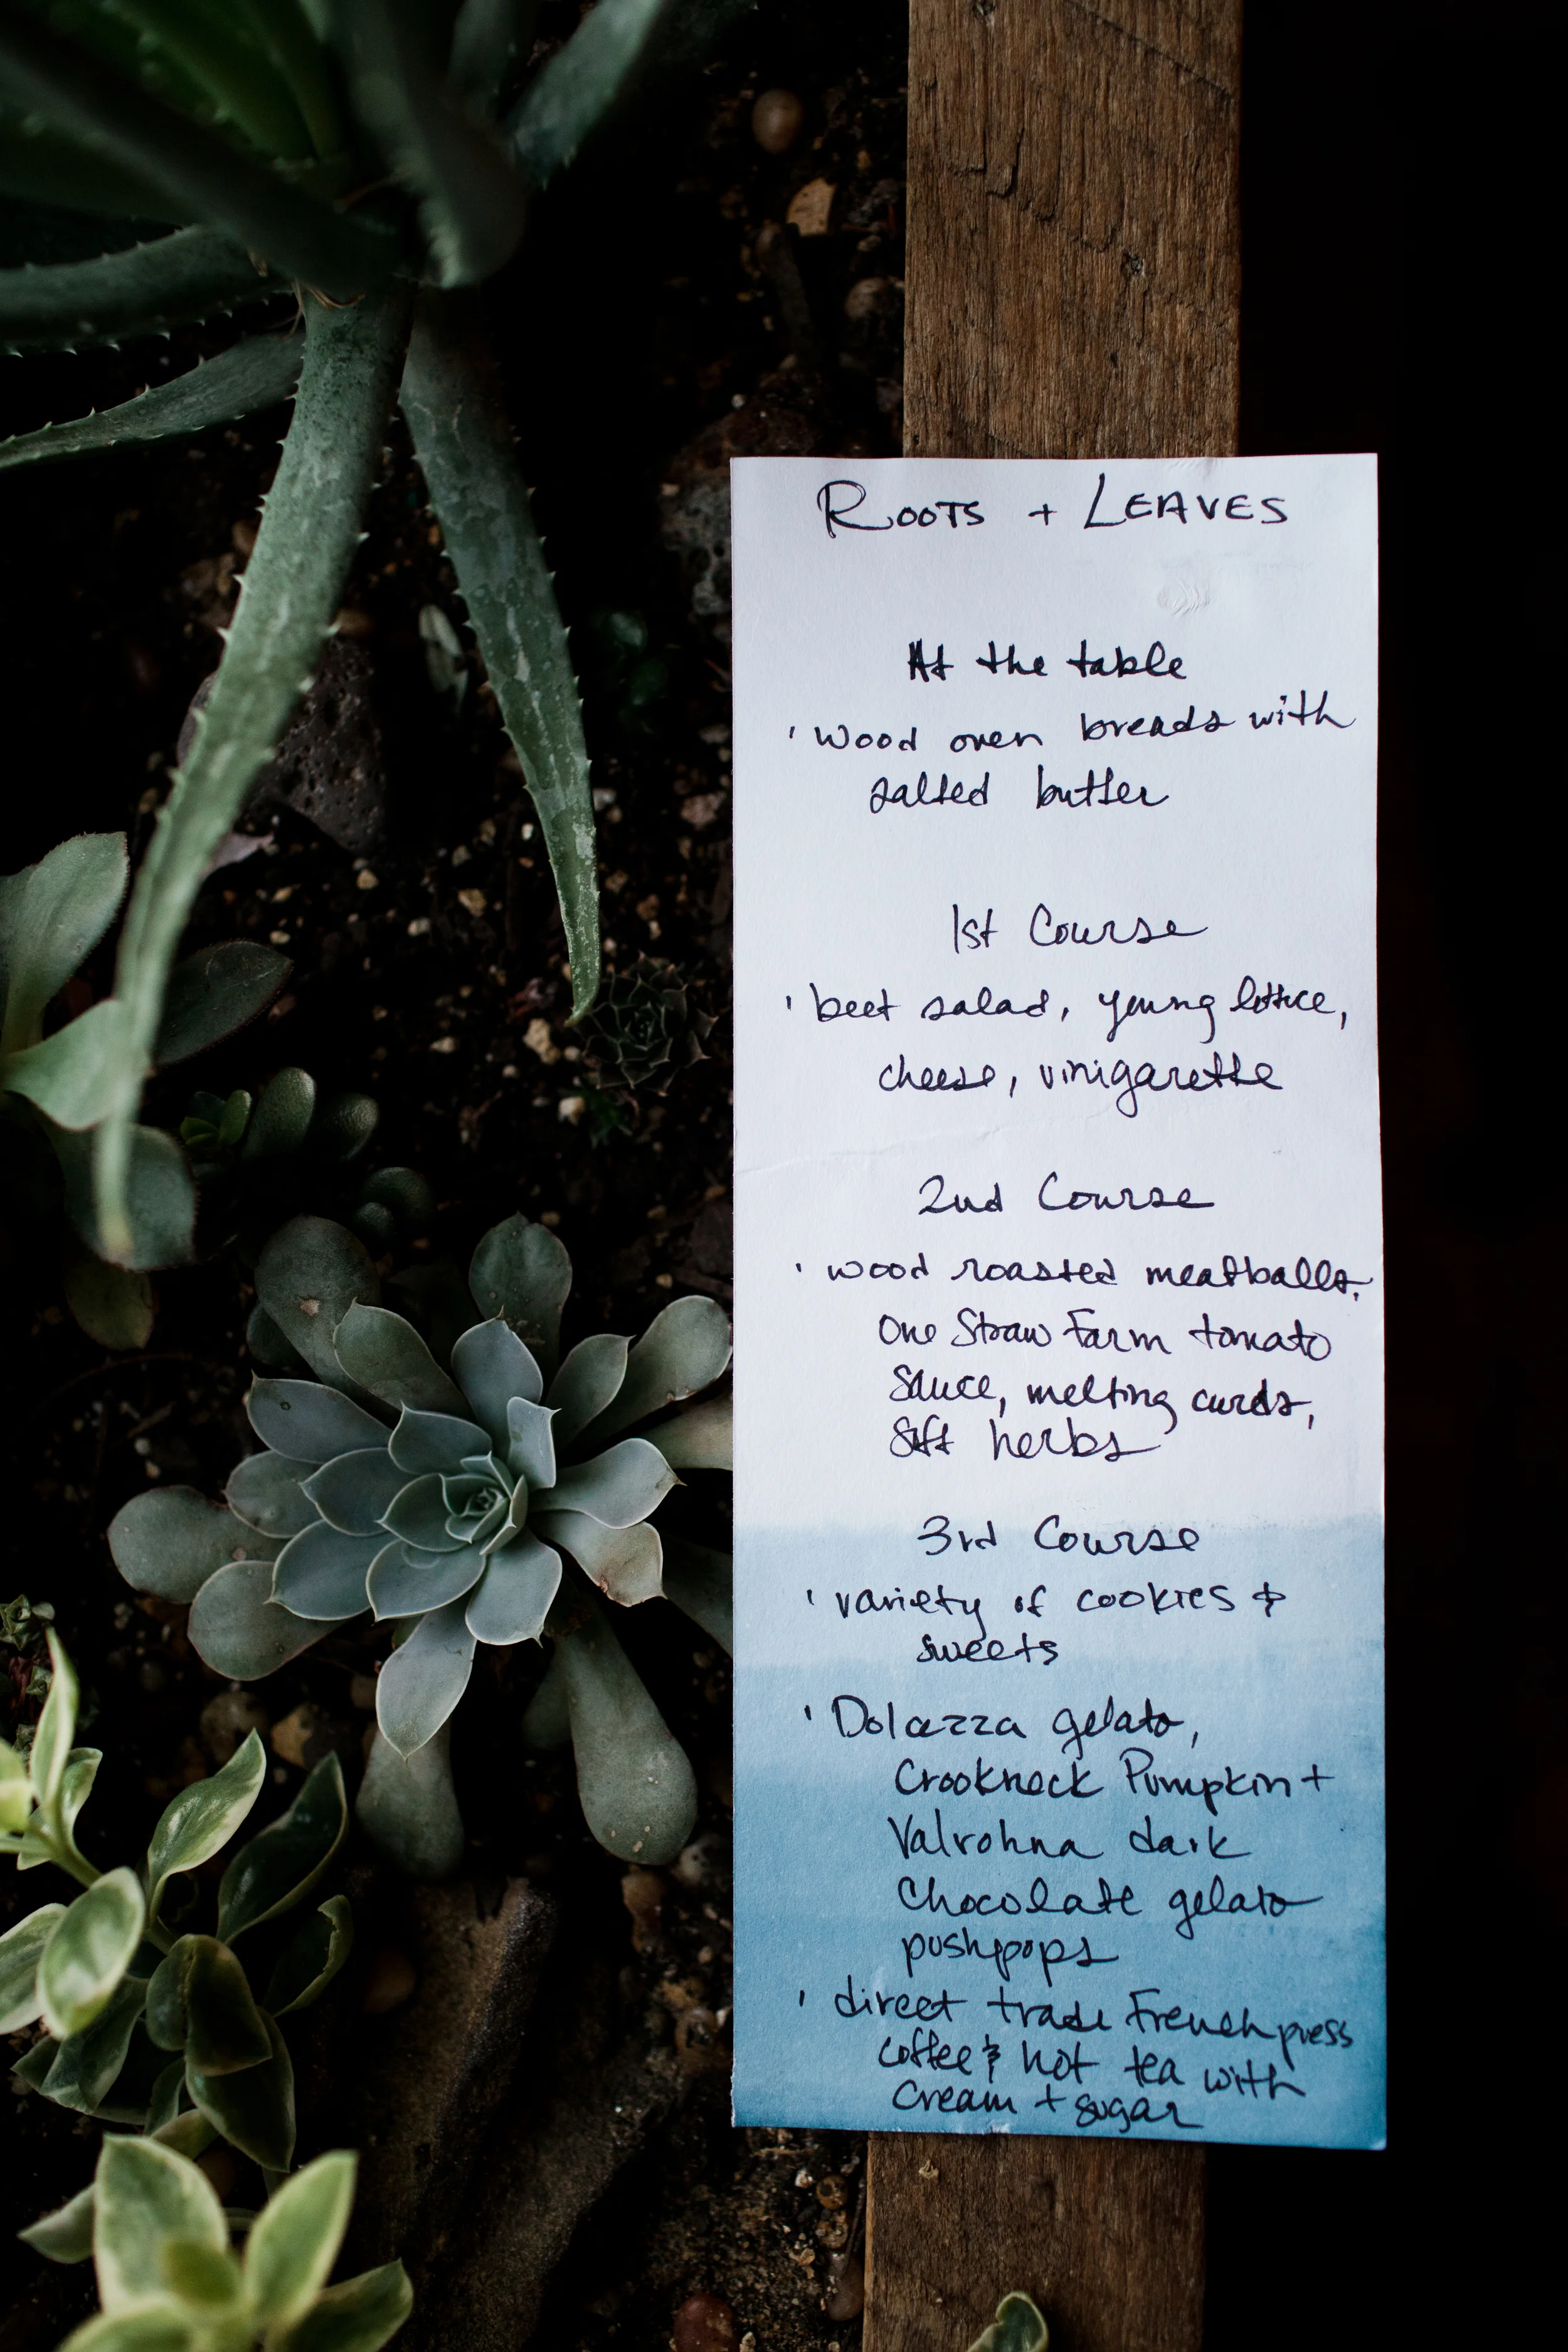 ROOTS + LEAVES
At the table
' wood oven breads with
salted butter
1st Course
' beet salad, young lettice,
cheese, vinigarette
2nd Course
' wood roasted meatballs,
One Straw Farm tomato
Sauce, melting curds,
Soft herbs
3rd Course
' variety of cookies &
sweets
' Dolcezza gelato,
Crookneck Pumpkin +
Valrohna dark
Chocolate gelato
pushpops
' direct trade French press
coffee & hot tea with
cream + sugar